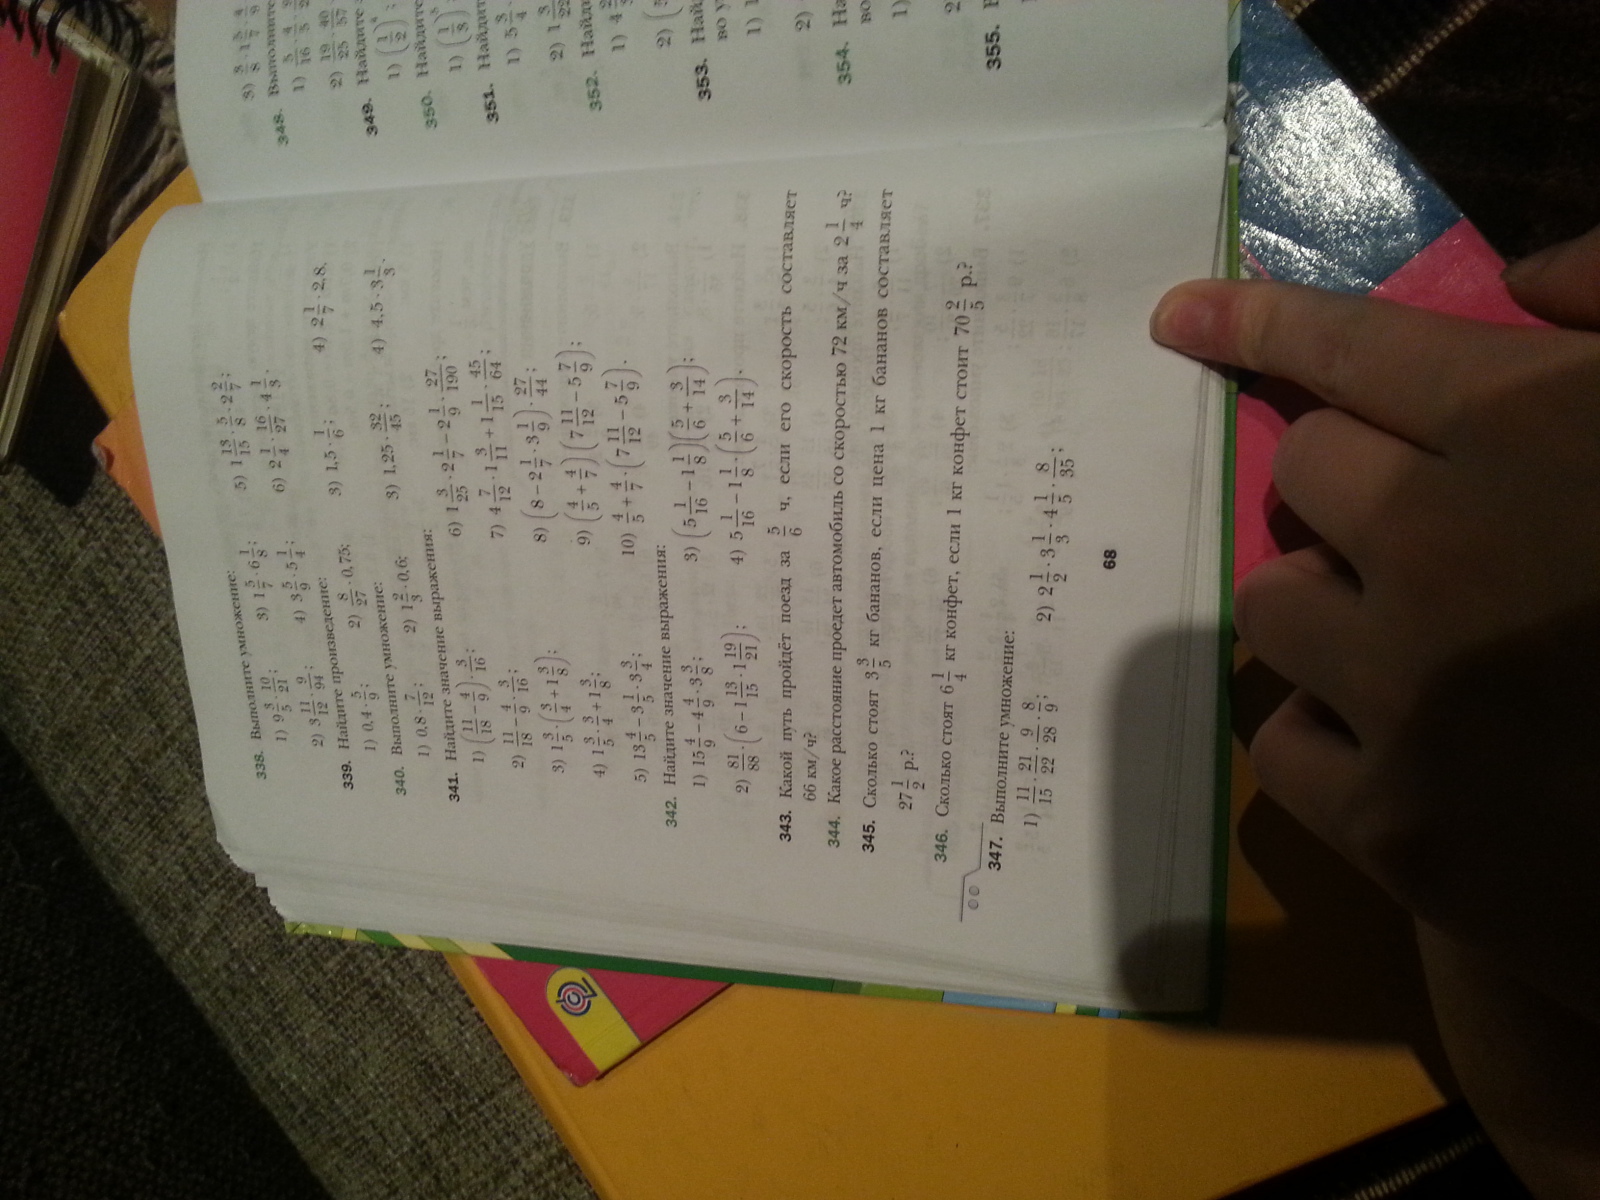 338. Выполните умножение:
1) 9 3/5 · 10/21; 3) 1 5/7 · 6 1/8; 5) 1 13/15 · 5/8 · 2 2/7;
2) 3 11/12 · 9/94; 4) 3 5/9 · 5 1/4; 6) 2 1/4 · 16/27 · 4 1/3.
339. Найдите произведение:
1) 0,4 · 5/9; 2) 8/27 · 0,75; 3) 1,5 · 1/6; 4) 2 1/7 · 2,8.
340. Выполните умножение:
1) 0,8 · 7/12; 2) 1 2/3 · 0,6; 3) 1,25 · 32/45; 4) 4,5 · 3 1/3.
341. Найдите значение выражения:
1) (11/18 − 4/9) · 3/16; 6) 1 3/25 · 2 1/7 − 2 1/9 · 27/190;
2) 11/18 − 4/9 · 3/16; 7) 4 7/12 · 1 3/11 + 1 1/15 · 45/64;
3) 1 3/5 · (3/4 + 1 3/8); 8) (8 − 2 1/7 · 3 1/9) · 27/44;
4) 1 3/5 · 3/4 + 1 3/8; 9) (4/5 + 4/7)(7 11/12 − 5 7/9);
5) 13 4/5 − 3 1/5 · 3 3/4; 10) 4/5 + 4/7 · (7 11/12 − 5 7/9).
342. Найдите значение выражения:
1) 15 4/9 − 4 4/9 · 3 3/8; 3) (5 1/16 − 1 1/8)(5/6 + 3/14);
2) 81/88 · (6 − 1 13/15 · 1 19/21); 4) 5 1/16 − 1 1/8 · (5/6 + 3/14).
343. Какой путь пройдёт поезд за 5/6 ч, если его скорость составляет
66 км/ч?
344. Какое расстояние проедет автомобиль со скоростью 72 км/ч за 2 1/4 ч?
345. Сколько стоят 3 3/5 кг бананов, если цена 1 кг бананов составляет
27 1/2 р.?
346. Сколько стоят 6 1/4 кг конфет, если 1 кг конфет стоит 70 2/5 р.?
347. Выполните умножение:
1) 11/15 · 21/22 · 9/28 · 8/9; 2) 2 1/2 · 3 1/3 · 4 1/5 · 8/35;
68
348. Выполните
349. Найдите
350. Найдите
351. Найдит
352. Найди
353. Най
во у
354. На
во
355.